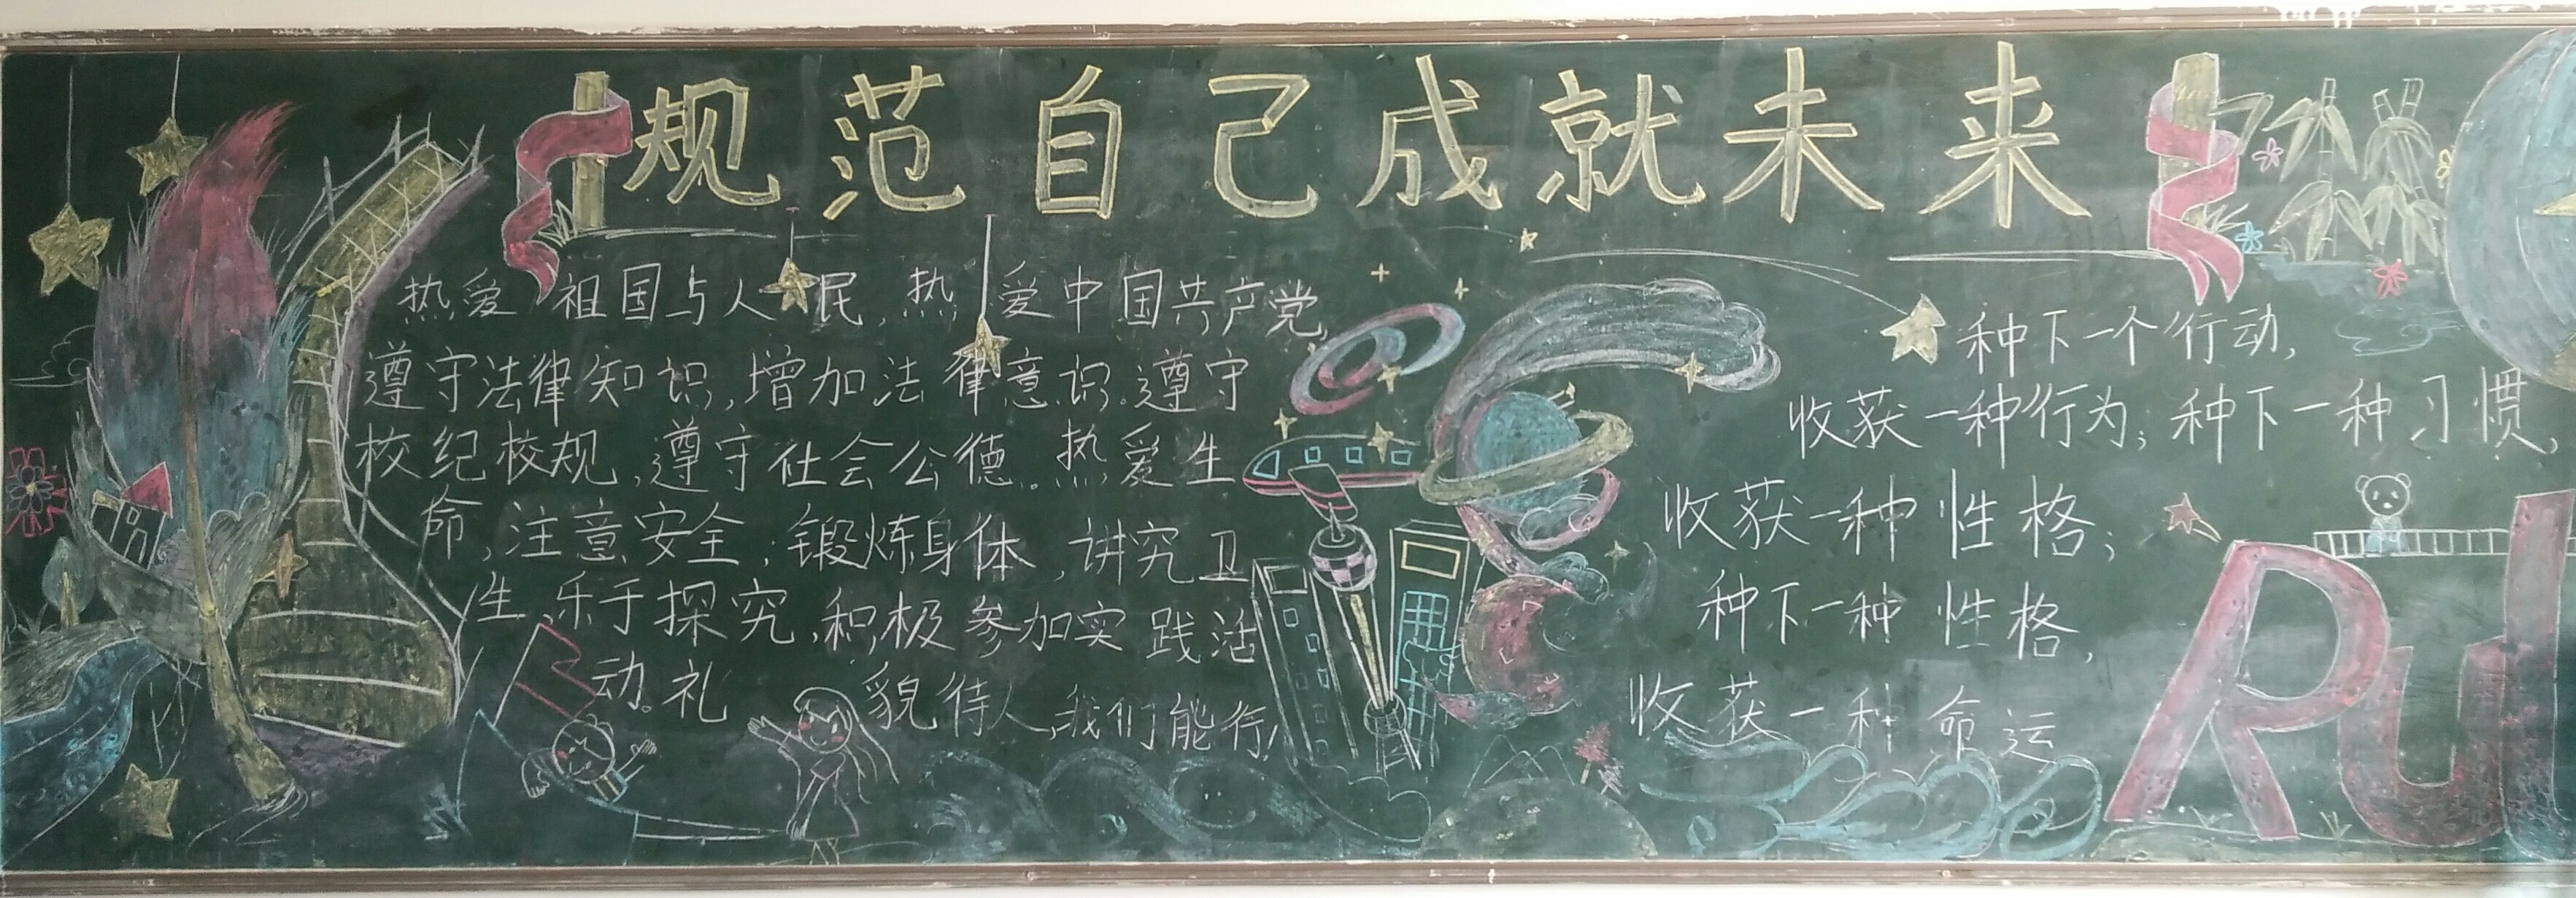 规范自己成就未来
热爱祖国与人民,热爱中国共产党,
遵守法律知识,增加法律意识.遵守
校纪校规,遵守社会公德.热爱生
命,注意安全;锻炼身体,讲究卫
生,乐于探究,积极参加实践活
动。礼貌待人,我们能行!
种下一个行动,
收获一种行为;种下一种习惯,
收获一种性格;
种下一种性格,
收获一种命运
Rul